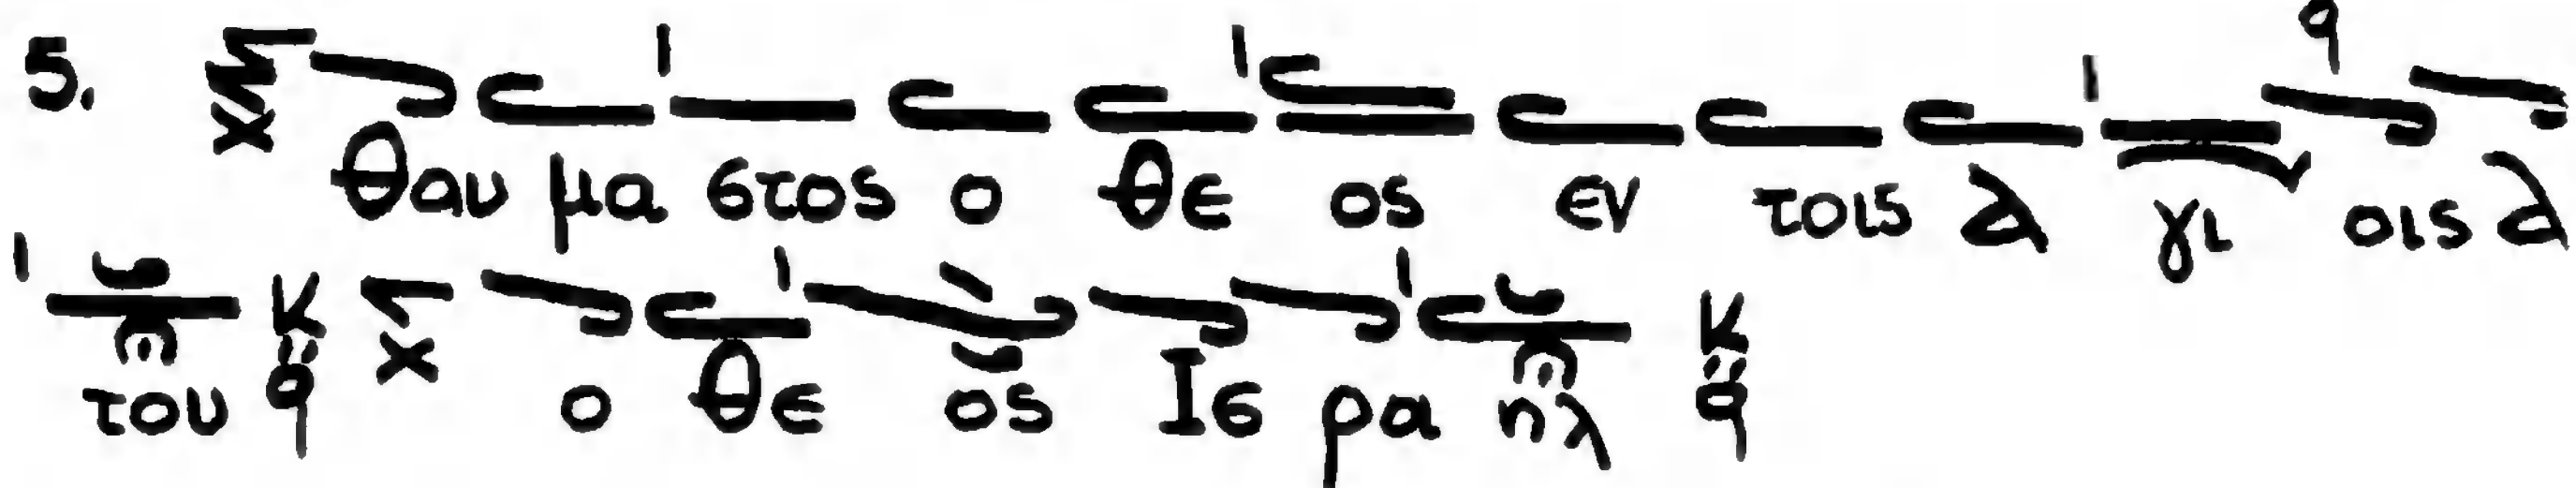 5. Θαυ μα στος ο θε ος εν τοις α γι οις α
του Κ q ο θε ος Ισ ρα ηλ Κ q